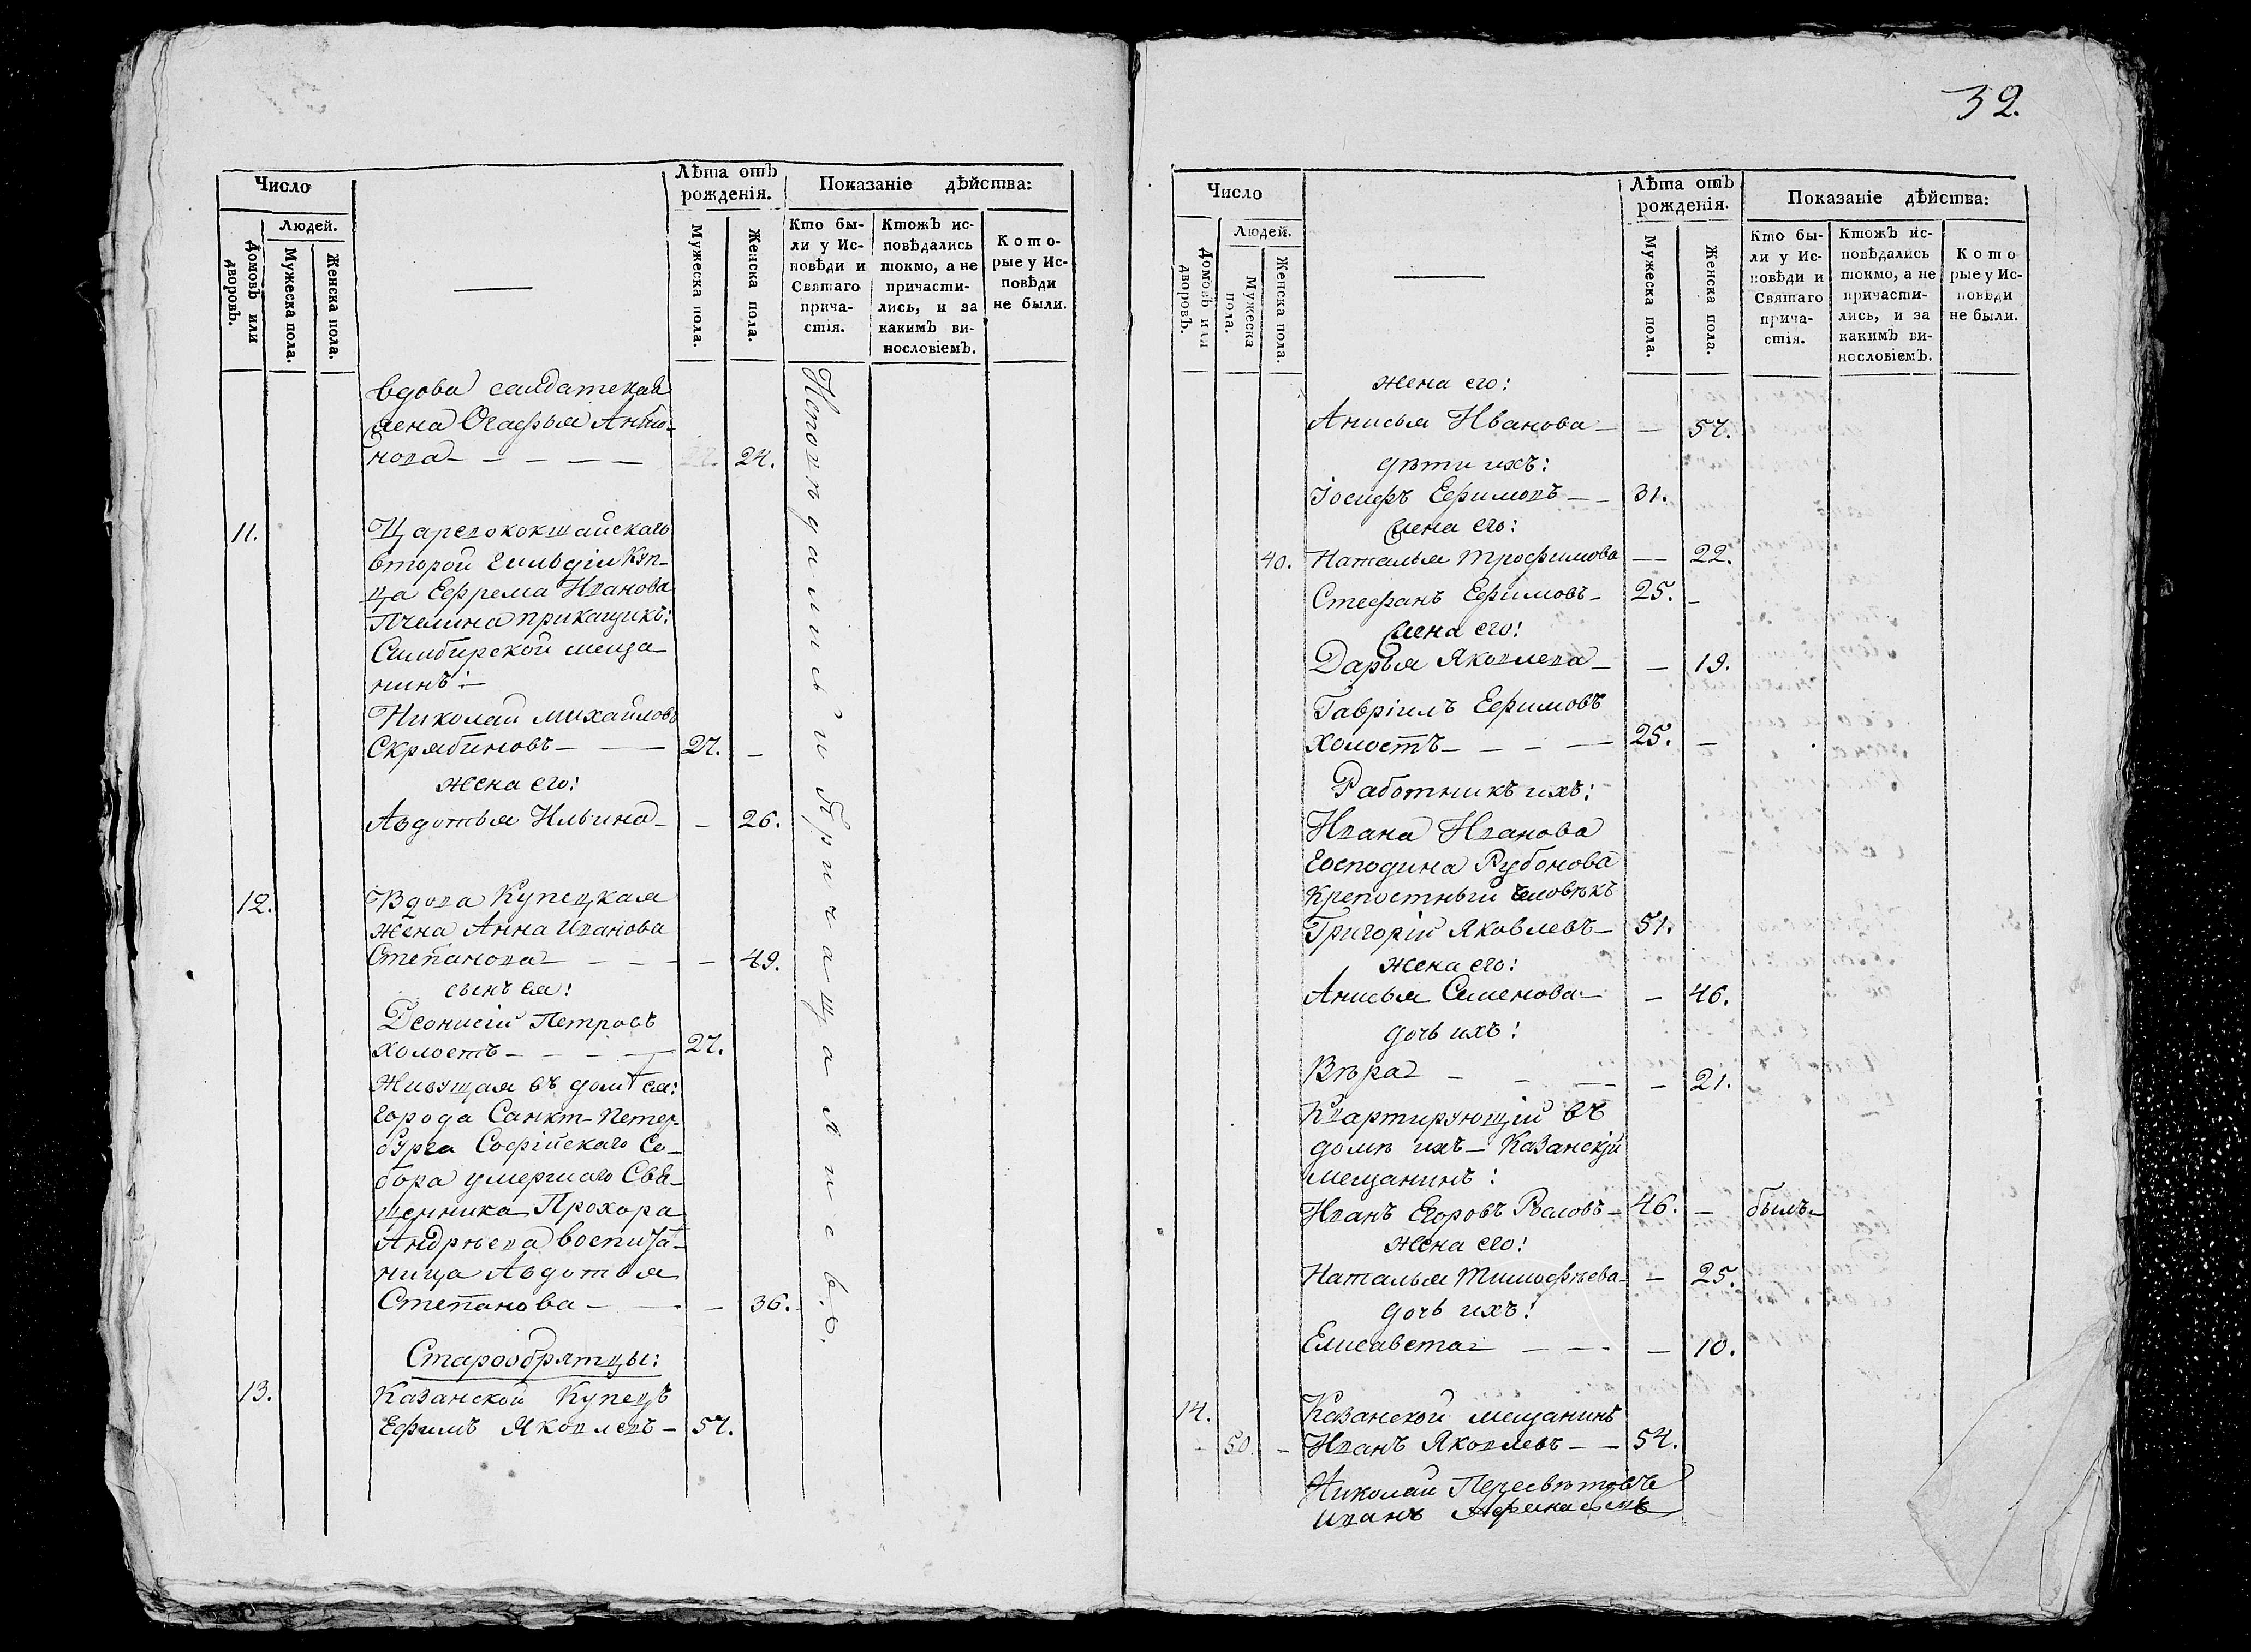 Число
Лѣта отъ
рожденія.
Показаніе дѣйства:
Домовъ или
дворовъ.
Людей.
Мужеска пола.
Женска пола.
Мужеска пола.
Женска пола.
Кто бы-
ли у Ис-
повѣди и
Святаго
прича-
стія.
Ктожъ ис-
повѣдались
токмо, а не
причасти-
лись, и за
какимъ ви-
нословіемъ.
Кото-
рые у Ис-
повѣди
не были.
вдова салдатская
жена Огафья Анти-
нова — — — — — 24.
11. Царевококшайскаго
второй гильдіи Куп-
ца Ефрема Иванова
Пчелина прикащикъ:
Симбирской меща-
нинъ:
Николай Михайловъ
Скрябиновъ — — 27. —
жена его:
Авдотья Ильина — — 26.
12. Вдова Купецкая
жена Анна Иванова
Степанова — — — — 49.
сынъ ея:
Деонисій Петровъ
холостъ — — — — 27.
Живущая въ домѣ ея:
города Санкт-Петер-
бурга Софійскаго Со-
бора умершаго Свя-
щенника Прохора
Андреева воспита-
ница Авдотья
Степанова — — — 36.
Старообрятцы:
13. Казанской Купецъ
Ефимъ Яковлевъ — 57.
Исповѣдались и Причащались.
32.
Число
Лѣта отъ
рожденія.
Показаніе дѣйства:
Домовъ или
дворовъ.
Людей.
Мужеска
пола.
Женска пола.
Мужеска пола.
Женска пола.
Кто бы-
ли у Ис-
повѣди и
Святаго
прича-
стія.
Ктожъ ис-
повѣдались
токмо, а не
причасти-
лись, и за
какимъ ви-
нословіемъ.
Кото
рые у Ис-
повѣди
не были.
жена его:
Анисья Иванова — — 57.
дѣти ихъ:
Іосифъ Ефимовъ — — 31.
жена его:
40. Наталья Трофимова — 22.
Стефанъ Ефимовъ — 25. —
жена его:
Дарья Яковлева — — 19.
Гавріилъ Ефимовъ
холостъ — — — — 25. —
Работникъ ихъ:
Ивана Иванова
господина Рубонова
крепостный человѣкъ
Григорій Яковлевъ — 51.
жена его:
Анисья Семенова — — 46.
дочь ихъ:
Вѣра — — — — 21.
Квартирующій въ
домѣ ихъ — Казанскій
мещанинъ:
Иванъ Егоровъ — 46. — былъ
жена его:
Наталья Тимофѣева — — 25.
дочь ихъ:
Елисавета — — — — 10.
14. Казанской мещанинъ
50. — Иванъ Яковлевъ — — 54.
Николай Пересвѣтовъ
Иванъ